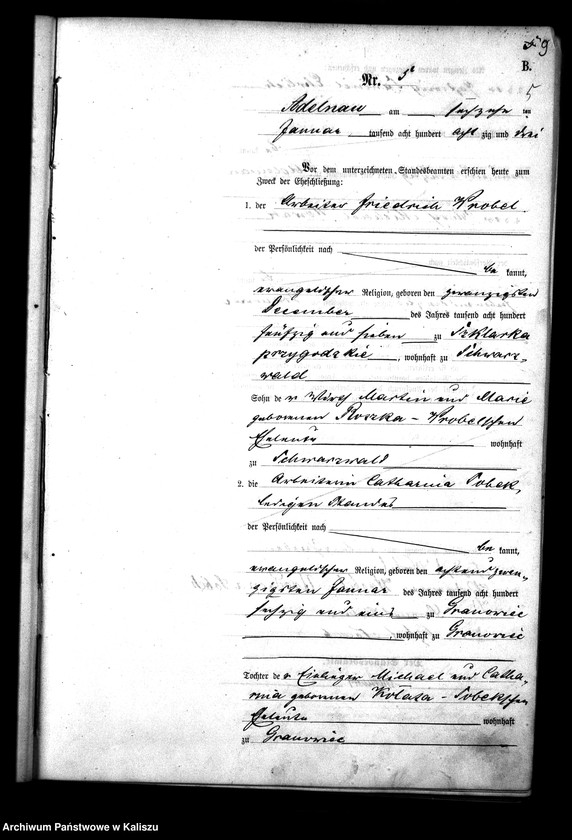 9
B.
Nr. 5
5
Adelnau am sechszehnten
Januar tausend acht hundert achtzig und drei
Vor dem unterzeichneten Standesbeamten erschien heute zum
Zweck der Eheschließung:
1. der Arbeiter Friedrich Wrobel
der Persönlichkeit nach
be kannt,
evangelischer Religion, geboren den zwanzigsten
December des Jahres tausend acht hundert
fünfzig und sieben zu Szklarka
przygodzkie, wohnhaft zu Schwarz-
wald
Sohn der Martin und Marie
geborenen Roszka - Wrobelschen
Eheleute wohnhaft
zu Schwarzwald
2. die Arbeiterin Catharina Sobek,
ledigen Standes
der Persönlichkeit nach
be kannt,
evangelischer Religion, geboren den achtundzwan-
zigsten Januar des Jahres tausend acht hundert
sechzig und eins zu Granowiec
, wohnhaft zu Granowiec
Tochter der Michael und Catha-
rina geborenen Kolata - Sobekschen
Eheleute wohnhaft
zu Granowiec
Archiwum Państwowe w Kaliszu